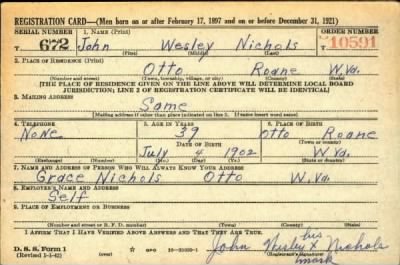 REGISTRATION CARD—(Men born on or after February 17, 1897 and on or before December 31, 1921)
SERIAL NUMBER 1. NAME (Print) ORDER NUMBER
T 672 John Wesley Nichols T 10591
(First) (Middle) (Last)
2. PLACE OF RESIDENCE (Print)
Otto Roane W.Va.
(Number and street) (Town, township, village, or city) (County) (State)
[THE PLACE OF RESIDENCE GIVEN ON THE LINE ABOVE WILL DETERMINE LOCAL BOARD
JURISDICTION; LINE 2 OF REGISTRATION CERTIFICATE WILL BE IDENTICAL]
3. MAILING ADDRESS
Same
[Mailing address if other than place indicated on line 2. If same insert word same]
4. TELEPHONE 5. AGE IN YEARS 6. PLACE OF BIRTH
None 39 Otto Roane
DATE OF BIRTH (Town or county)
July 4 1902 W Va.
(Exchange) (Number) (Mo.) (Day) (Yr.) (State or country)
7. NAME AND ADDRESS OF PERSON WHO WILL ALWAYS KNOW YOUR ADDRESS
Grace Nichols Otto W.Va
8. EMPLOYER'S NAME AND ADDRESS
Self
9. PLACE OF EMPLOYMENT OR BUSINESS
(Number and street or R. F. D. number) (Town) (County) (State)
I AFFIRM THAT I HAVE VERIFIED ABOVE ANSWERS AND THAT THEY ARE TRUE.
D. S. S. Form 1 GPO his
(Revised 1-1-42) John Wesley x Nichols
(Registrant's signature)
mark